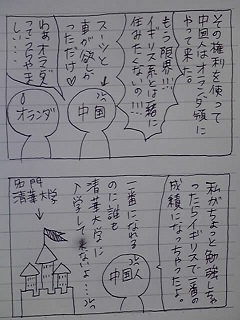 その権利を使って
中国人はオランダ領に
やって来た。
もう限界!!!
イギリス系とは一緒に
住みたくないの!!!
中国
スーツと
車が欲しか
っただけ♡
オランダ
私がちょっと勉強しちゃ
ったらイギリスで一番の
成績になっちゃったよ。
中国人
一番になれる
のに誰も
清華大学に
入学して来ないよ…
名門
清華大学